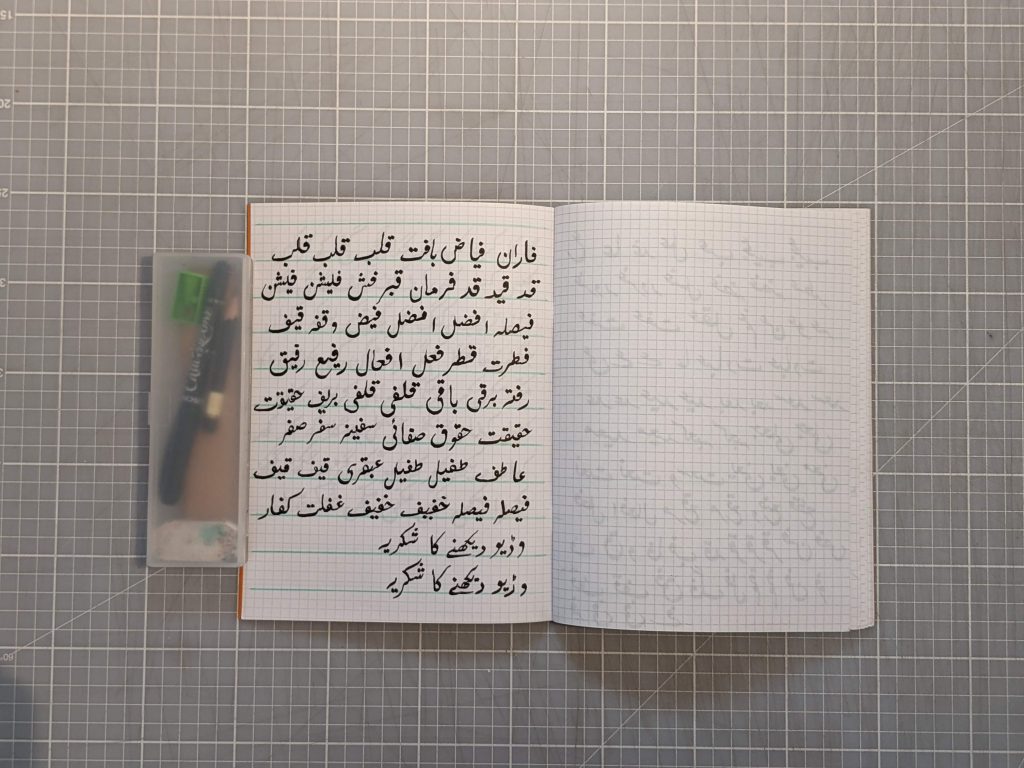 فاران فیاض بافت قلب قلب قلب
قد قید قد فرمان قبر فش فیشن فیشن
فیصلہ افضل افضل فیض وقفہ قیف
فطرت قطر فعل افعال رفیع رفیق
رفتہ برقی باقی قلفی قلفی بریف حقیقت
حقیقت حقوق صفائی سفینہ سفر صفر
عاطف طفیل طفیل عبقری قیف قیف
فیصلہ فیصلہ خفیف خفیف غفلت کفار
وڈیو دیکھنے کا شکریہ
وڈیو دیکھنے کا شکریہ